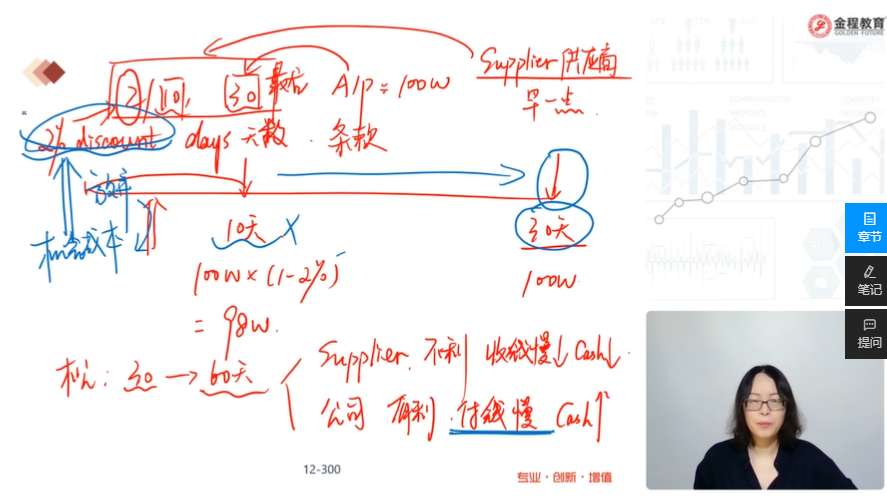 金程教育
GOLDEN FUTURE
Supplier 供应商
早一点
2/10, 30 最后 A/p = 100w
2% discount days 天数. 条款
放弃
机会成本
10天 X
30天
100w × (1-2%)
100w
= 98w.
Supplier. 不利 收钱慢↓ Cash↓.
30 → 60天
公司 有利. 付钱慢 Cash↑
12-300
专业·创新·增值
章节
笔记
提问